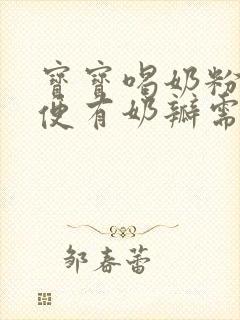 寶寶喝奶粉
便有奶瓣需
邹春蕾